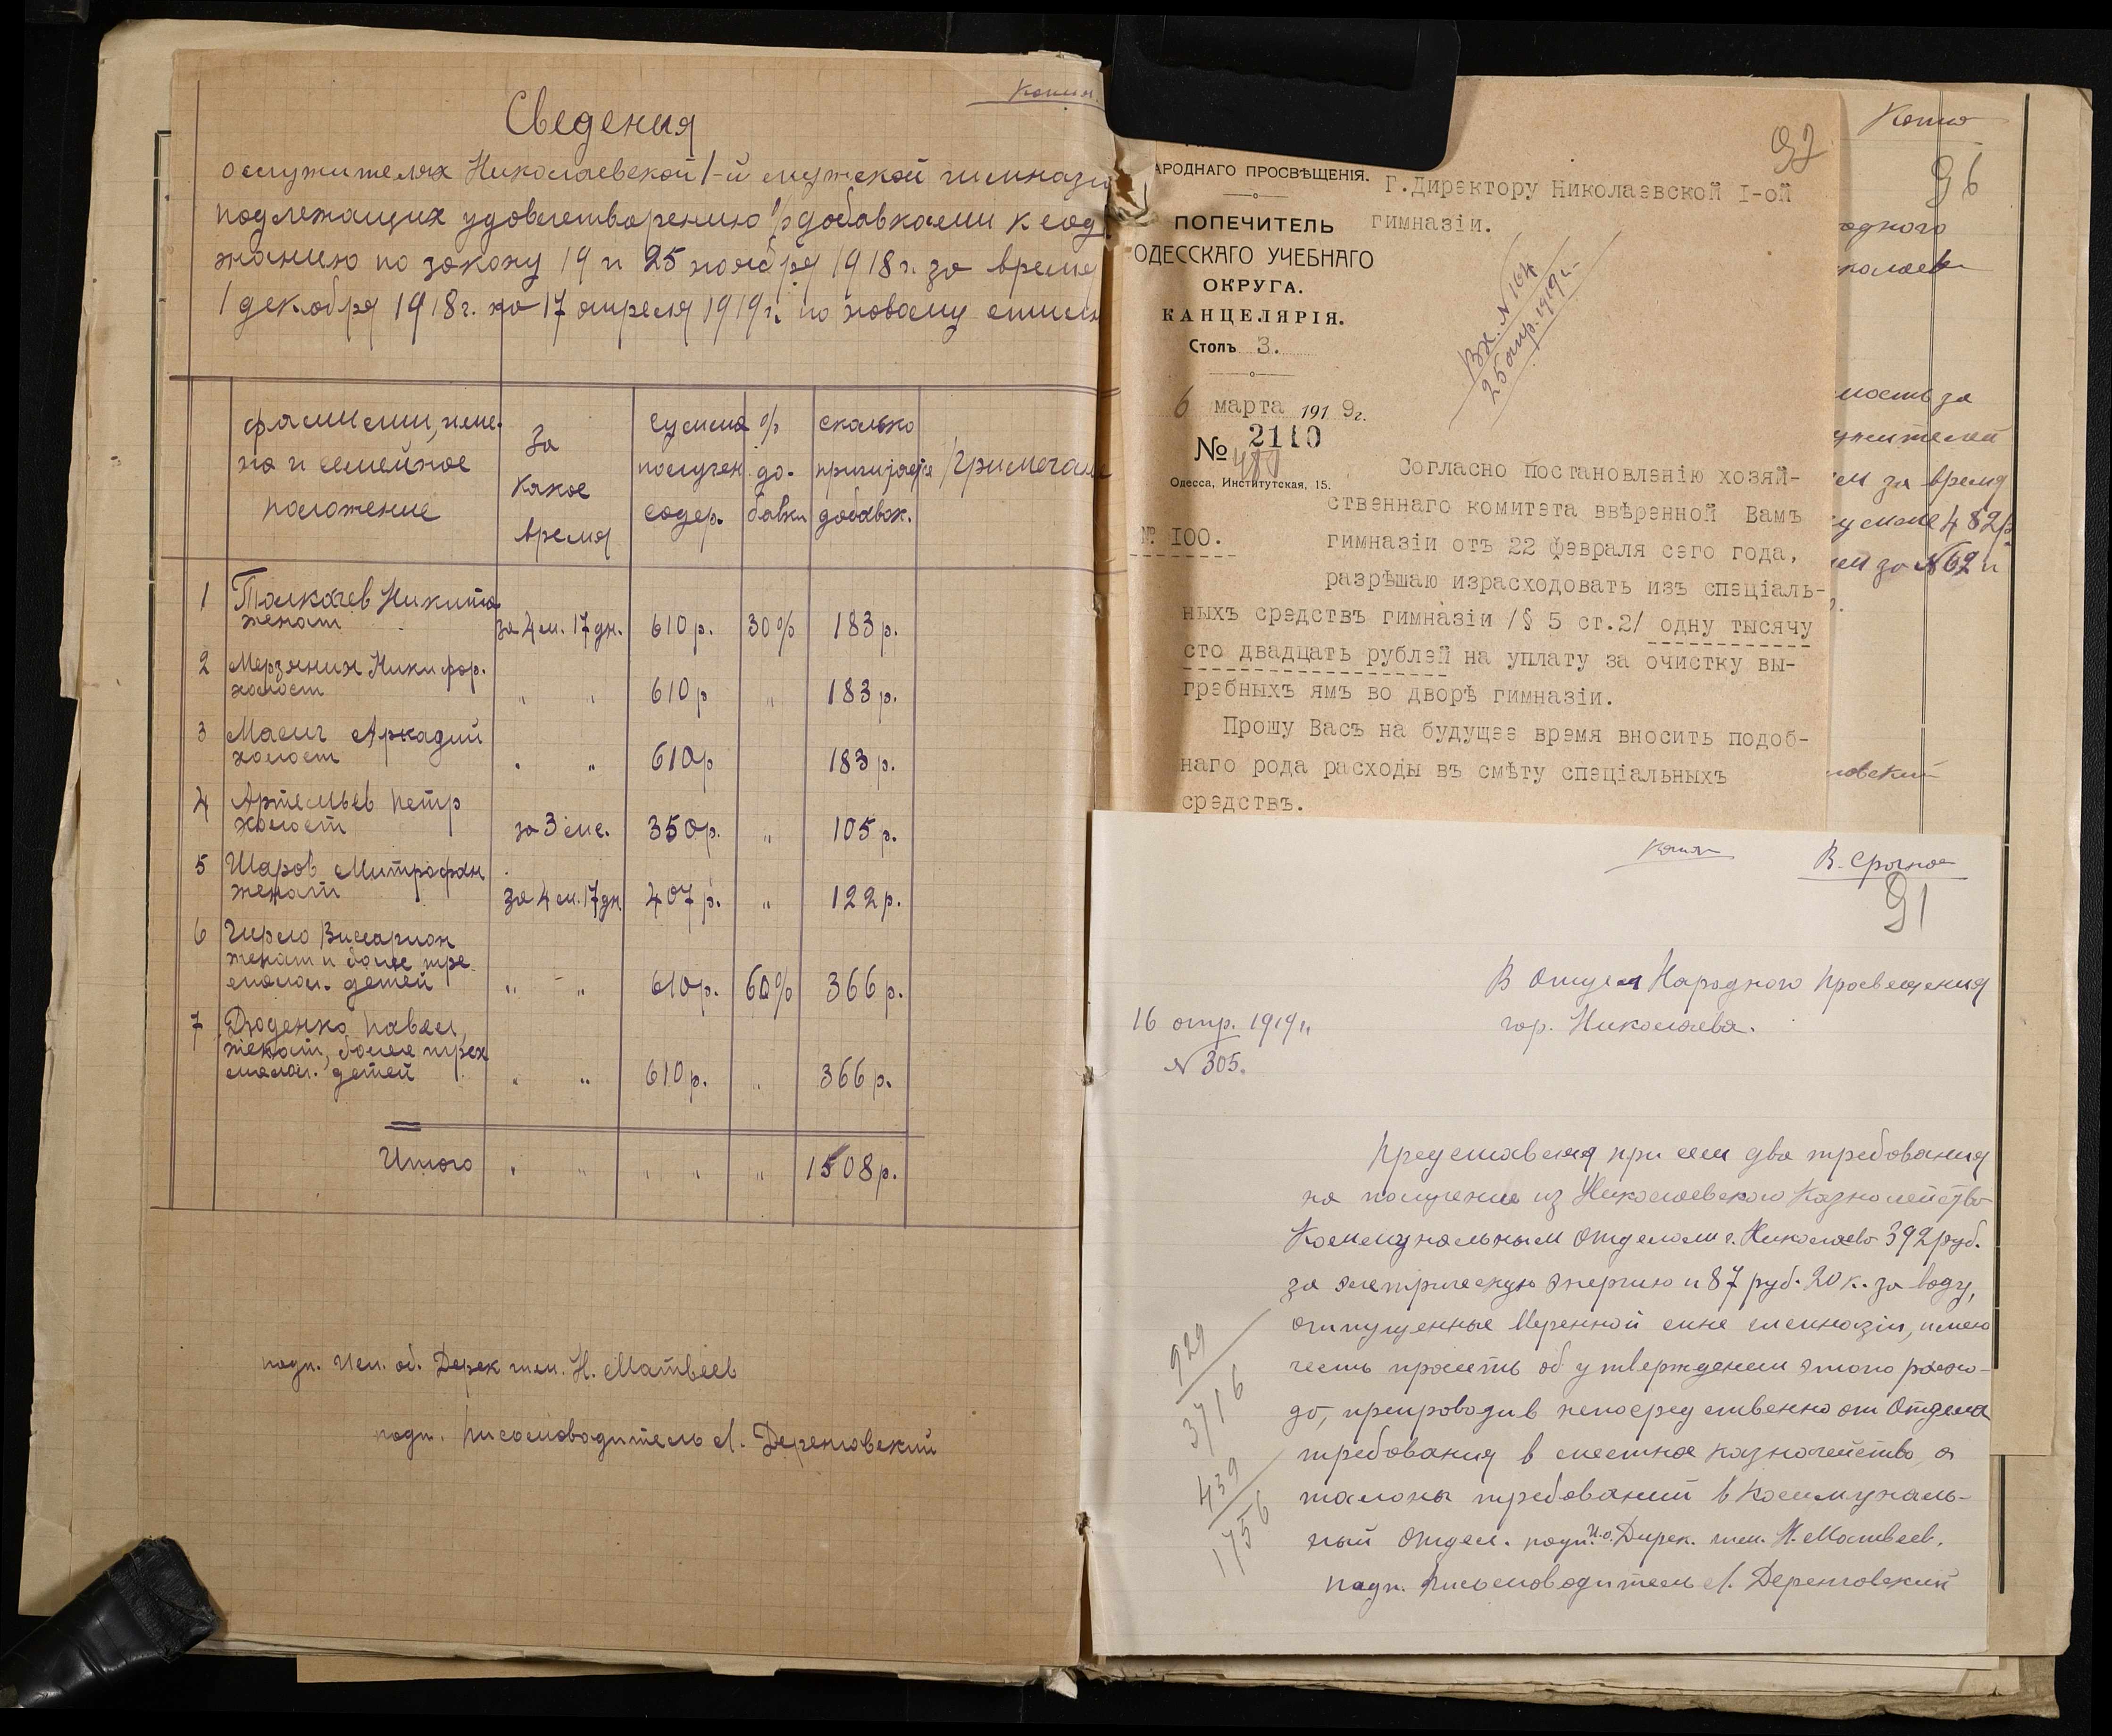 Копия.
Сведения
о служителях Николаевской 1-й мужской гимназии
подлежащих удовлетворению % добавками к сод
жанию по закону 19 и 25 ноября 1918 г. за время
1 декабря 1918 г. по 17 апреля 1919 г. по новому стилю
фамилии, имe-
на и семейное
положение
За
какое
время
сумма
получен.
содер.
%
до-
бавки
сколько
причитается
добавок.
Примечание
1 Толкачев Никита
женат за 4 м. 17 дн. 610 р. 30% 183 р.
2 Мерзяких Никифор.
холост " " 610 р " 183 р.
3 Масич Аркадий
холост " " 610 р 183 р.
4 Артемьев Петр
холост за 3 мс. 350 р. " 105 р.
5 Шаров Митрофан
женат за 4 м. 17 дн. 407 р. " 122 р.
6 Виссарион
женат и более тре
малол. детей " " 610 р. 60% 366 р.
7 Дюденко Павел,
женат, более трех
малол. детей " " 610 р. " 366 р.
Итого " " " " " 1508 р.
подп. Исп. об. Дерек тим. Н. Матвеев
подп. Письмоводитель Л. Дерентовский
92
АРОДНАГО ПРОСВѢЩЕНІЯ.
ПОПЕЧИТЕЛЬ
ОДЕССКАГО УЧЕБНАГО
ОКРУГА.
КАНЦЕЛЯРІЯ.
Столъ 3.
6 марта 1919г.
№ 2110
Одесса, Институтская, 15.
№ 100.
Г.Директору Николаевской I-ой
гимназіи.
Вх. N 164
25 апр. 1919 г.
Согласно постановленію хозяй-
ственнаго комитета ввѣренной Вамъ
гимназіи отъ 22 февраля сего года,
разрѣшаю израсходовать изъ спеціаль-
ныхъ средствъ гимназіи /§ 5 ст.2/ одну тысячу
сто двадцать рублей на уплату за очистку вы-
гребныхъ ямъ во дворѣ гимназіи.
Прошу Васъ на будущее время вносить подоб-
наго рода расходы въ смѣту спеціальныхъ
средствъ.
Копия
96
одного
колаев
мость за
ужителей
ем за время
сумме 482 р.
ем за N 62 и
ловский
Копия
В. Срочное
91
В Отдел Народного Просвещения
гор. Николаева.
16 апр. 1919 г.
N 305.
Представляя при сем два требования
на получение из Николаевского Казначейства
Коммунальным Отделом г. Николаева 392 руб.
за электрическую энергию и 87 руб. 20 к. за воду,
отпущенные вверенной мне гимназии, имею
честь просить об утверждении этого расхо-
да, препроводив непосредственно от Отдела
требования в местное казначейство, а
талоны требований в Коммуналь-
ный Отдел. подп. И.о. Дирек. тим. Н. Матвеев.
подп. Письмоводитель Л. Дерентовский
929
3716
439
1756